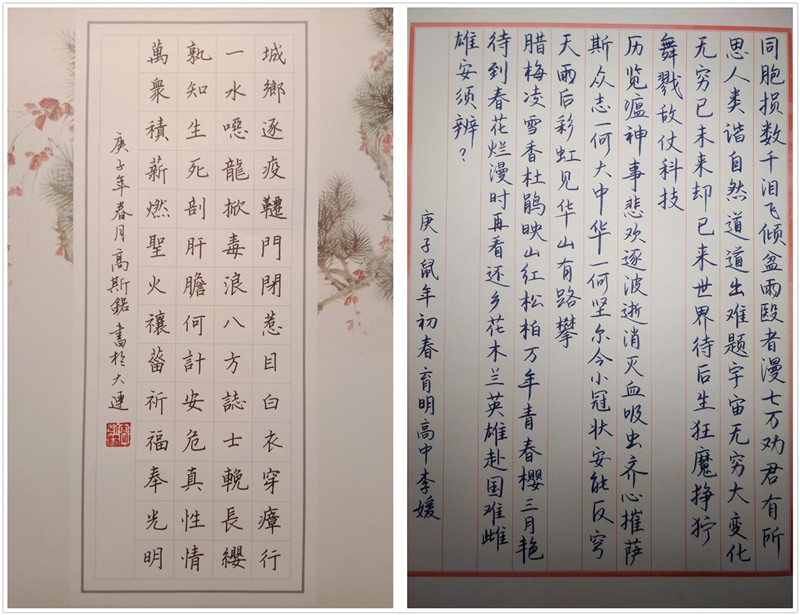 城鄉逐疫韆門閉惹目白衣穿瘴行
一水噁龍掀毒浪八方誌士輓長纓
孰知生死剖肝膽何計安危真性情
萬衆積薪燃聖火禳菑祈福奉光明
庚子年春月高斯書於大連
同胞损数千泪飞倾盆雨殴者漫七万劝君有所
思人类谐自然道道出难题宇宙无穷大变化
无穷已未来却已来世界待后生狂魔挣狞
舞戮敌仗科技
历览瘟神事悲欢逐波逝消灭血吸虫齐心摧萨
斯众志一何大中华一何坚尔今小冠状安能反穹
天雨后彩虹见华山有路攀
腊梅凌雪香杜鹃映山红松柏万年青春樱三月艳
待到春花烂漫时再看还乡花木兰英雄赴国难雌
雄安须辨？
庚子鼠年初春育明高中李媛